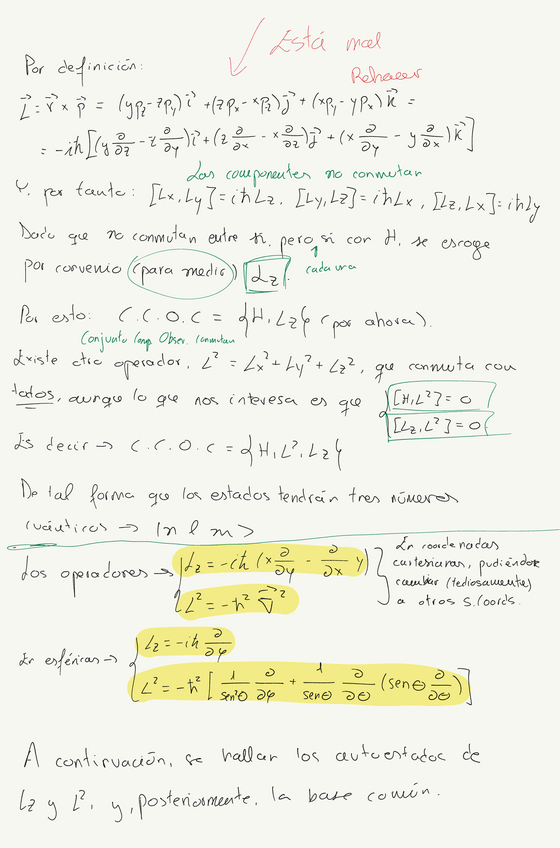 Está mal
Rehacer
Por definición:
\vec{L} = \vec{r} × \vec{p} = (yp_z - zp_y)\vec{i} + (zp_x - xp_z)\vec{j} + (xp_y - yp_x)\vec{k} =
= -iħ[(y ∂/∂z - z ∂/∂y)\vec{i} + (z ∂/∂x - x ∂/∂z)\vec{j} + (x ∂/∂y - y ∂/∂x)\vec{k}]
Las componentes no conmutan
Y, por tanto: [Lx, Ly] = iħLz, [Ly, Lz] = iħLx, [Lz, Lx] = iħLy
Dado que no conmutan entre sí, pero sí con H, se escoge
cada una
por convenio (para medir) Lz.
Por esto: C.C.O.C = {H, Lz} (por ahora).
Conjunto Comp. Obser. Conmutan
Existe otro operador, L² = Lx² + Ly² + Lz², que conmuta con
todos, aunque lo que nos interesa es que { [H, L²] = 0
[Lz, L²] = 0
Es decir → C.C.O.C = {H, L², Lz}
De tal forma que los estados tendrán tres números
cuánticos → |n l m>
Los operadores → { Lz = -iħ (x ∂/∂y - ∂/∂x y)
L² = -ħ² \vec{∇}²
} En coordenadas
cartesianas, pudiéndose
cambiar (tediosamente)
a otros S.Coords.
En esféricas → { Lz = -iħ ∂/∂φ
L² = -ħ² [1/sen²θ ∂/∂φ + 1/senθ ∂/∂θ (senθ ∂/∂θ)]
A continuación, se hallar los autoestados de
Lz y L², y, posteriormente, la base común.